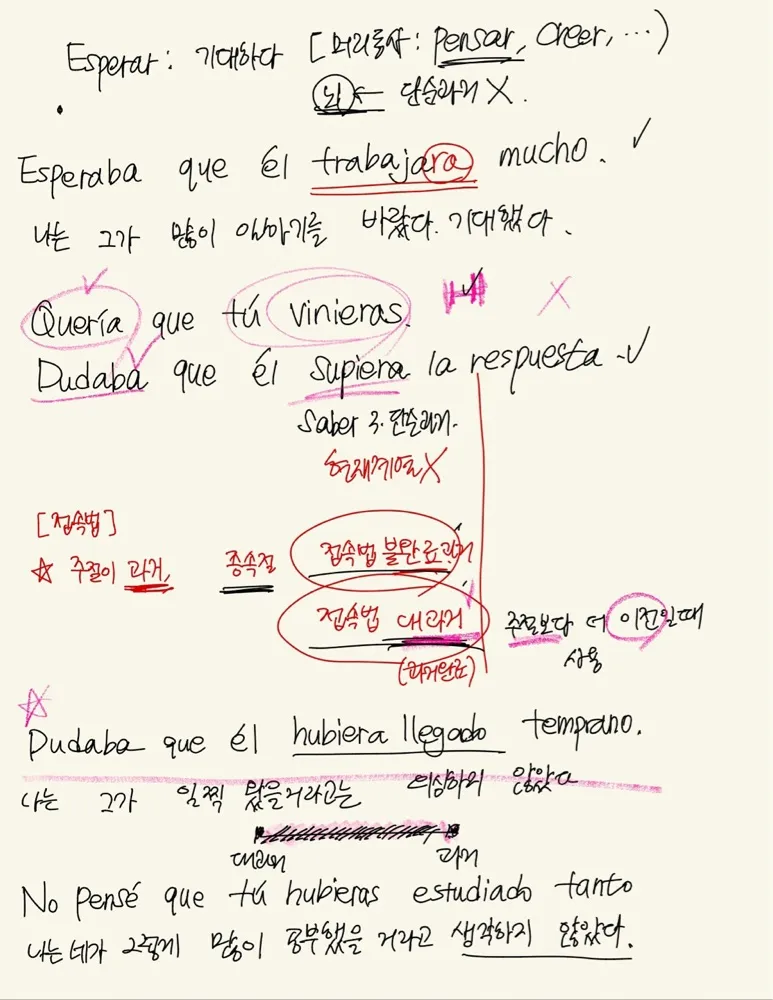 Esperar: 기대하다 [머리동사: pensar, creer, ...)
뇌 ← 단순과거 X.
Esperaba que él trabajara mucho. ✓
나는 그가 많이 일하기를 바랐다. 기대했다.
Quería que tú vinieras. X
Dudaba que él supiera la respuesta. ✓
Saber 3. 단순과거.
현재계열 X
[접속법]
☆ 주절이 과거, 종속절 접속법 불완료과거
접속법 대과거 주절보다 더 이전일때
사용
(과거완료)
☆
Dudaba que él hubiera llegado temprano.
나는 그가 일찍 왔을거라고는 않았다
대과거 과거
No pensé que tú hubieras estudiado tanto
나는 네가 그렇게 많이 공부했을 거라고 생각하지 않았다.